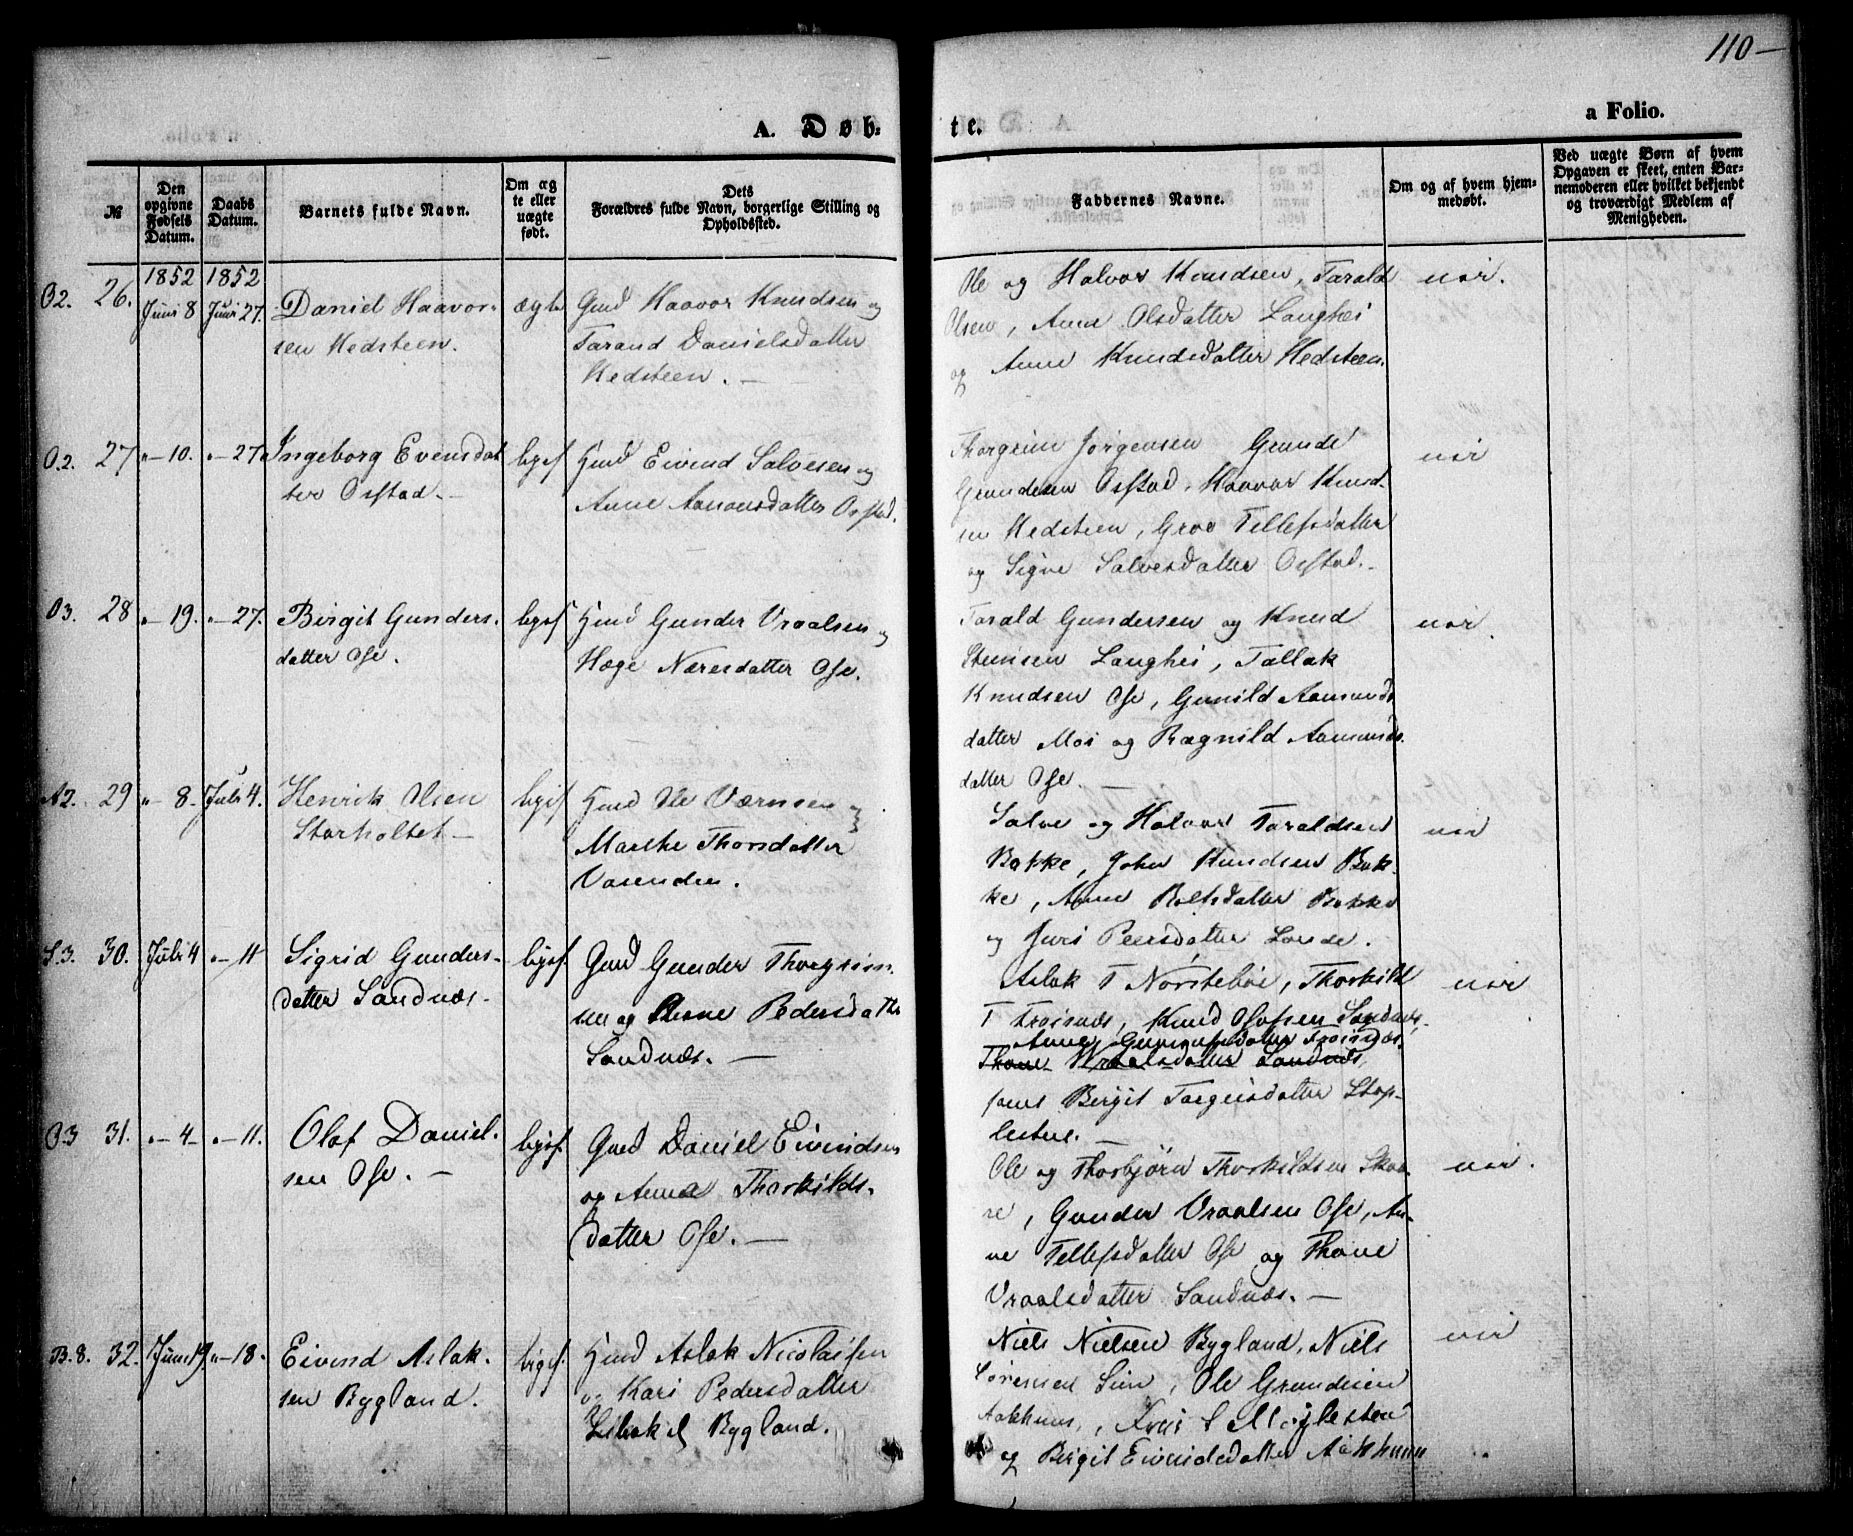 110 —
A. Døb-
te.
a Folio.
№
Den opgivne Fødsels Datum.
Daabs Datum.
Barnets fulde Navn.
Om ægte eller uægte født.
Dets Forældres fulde Navn, borgerlige Stilling og Opholdssted.
Faddernes Navne.
Om og af hvem hjemmedøbt.
Ved uægte Børn af hvem Opgaven er skeet, enten Barnemoderen eller hvilket bekjendt og troværdigt Medlem af Menigheden.
1852 1852
O2. 26. Juni 8 Juni 27. Daniel Haavor-
sen Hedsteen.
ægte
Gmd Haavor Knudsen og
Tarand Danielsdatter
Hedsteen. —
Ole og Halvor Knudsen, Tarald
Olsen, Anne Olsdatter Langhei
og Anne Knudsdatter Hedsteen.
nei.
O2. 27 " - 10. " - 27 Ingeborg Evensdat
ter Osstad. -
liges
Hmd Eivind Salvesen og
Anne Aanonsdatter Osstad.
Thorgrim Jørgensen Grunde
Grundesen Osstad, Haavor Knud-
sen Hedsteen, Groe Tellefsdatter
og Signe Salvesdatter Osstad. -
nei
O3. 28 " - 19. " - 27. Birgit Gunders-
datter Ose.
liges
Hmd Gunder Vraalsen og
Hæge Næresdatter Ose.
Tarald Gundersen og Knud
Stensen Langhei, Tallak
Knudsen Ose, Gunild Aamunds
datter Moi og Ragnild Aamunds-
datter Ose. —
nei.
A2. 29 " - 8. Juli 4. Henrik Olsen
Storholtet —
ligis
Hmd Ole Værnsen og
Marthe Thorsdatter
Vasenden.
Salve og Halvor Taraldsen
Bakke, John Knudsen Bak-
ke, Anne Rolfsdatter Bakke
og Juri Peersdatter Lande.
nei
S.3. 30. Juli 4 " - 11 Sigrid Gunders-
datter Sandnæs -
ligis.
Gmd Gunder Thorgrim
sen og Anne Pedersdatter
Sandnæs. —
Aslak T Nordstebøe, Thorkild
T Frøisnæs, Knud Olafsen Sandnæs,
Anne Gunnufsdatter Frøisnæs,
Thone Vraalsdatter Sandnæs,
samt Birgit Targeisdatter Stop-
lestue. —
nei
O.3 31. " - 4 - " - 11. Olaf Daniel-
sen Ose. —
ligis.
Gmd Daniel Eivindsen
og Anne Thorkilds-
datter Ose. —
Ole og Thorbjørn Thorkildsen Skom-
re, Gunder Vraalsen Ose, An-
ne Tellefsdatter Ose og Thone
Vraalsdatter Sandnæs. —
nei.
B.8. 32. Juni 19 " - 18. Eivind Aslak-
sen Bygland.
liges.
Hmd Aslak Nicolaisen
og Kari Pedersdatter
Bygland.
Niels Nielsen Bygland, Niels
Sørensen Ole Grundesen
Aakhuus,
og Birgit Eivindsdatter Aakhuus
nei